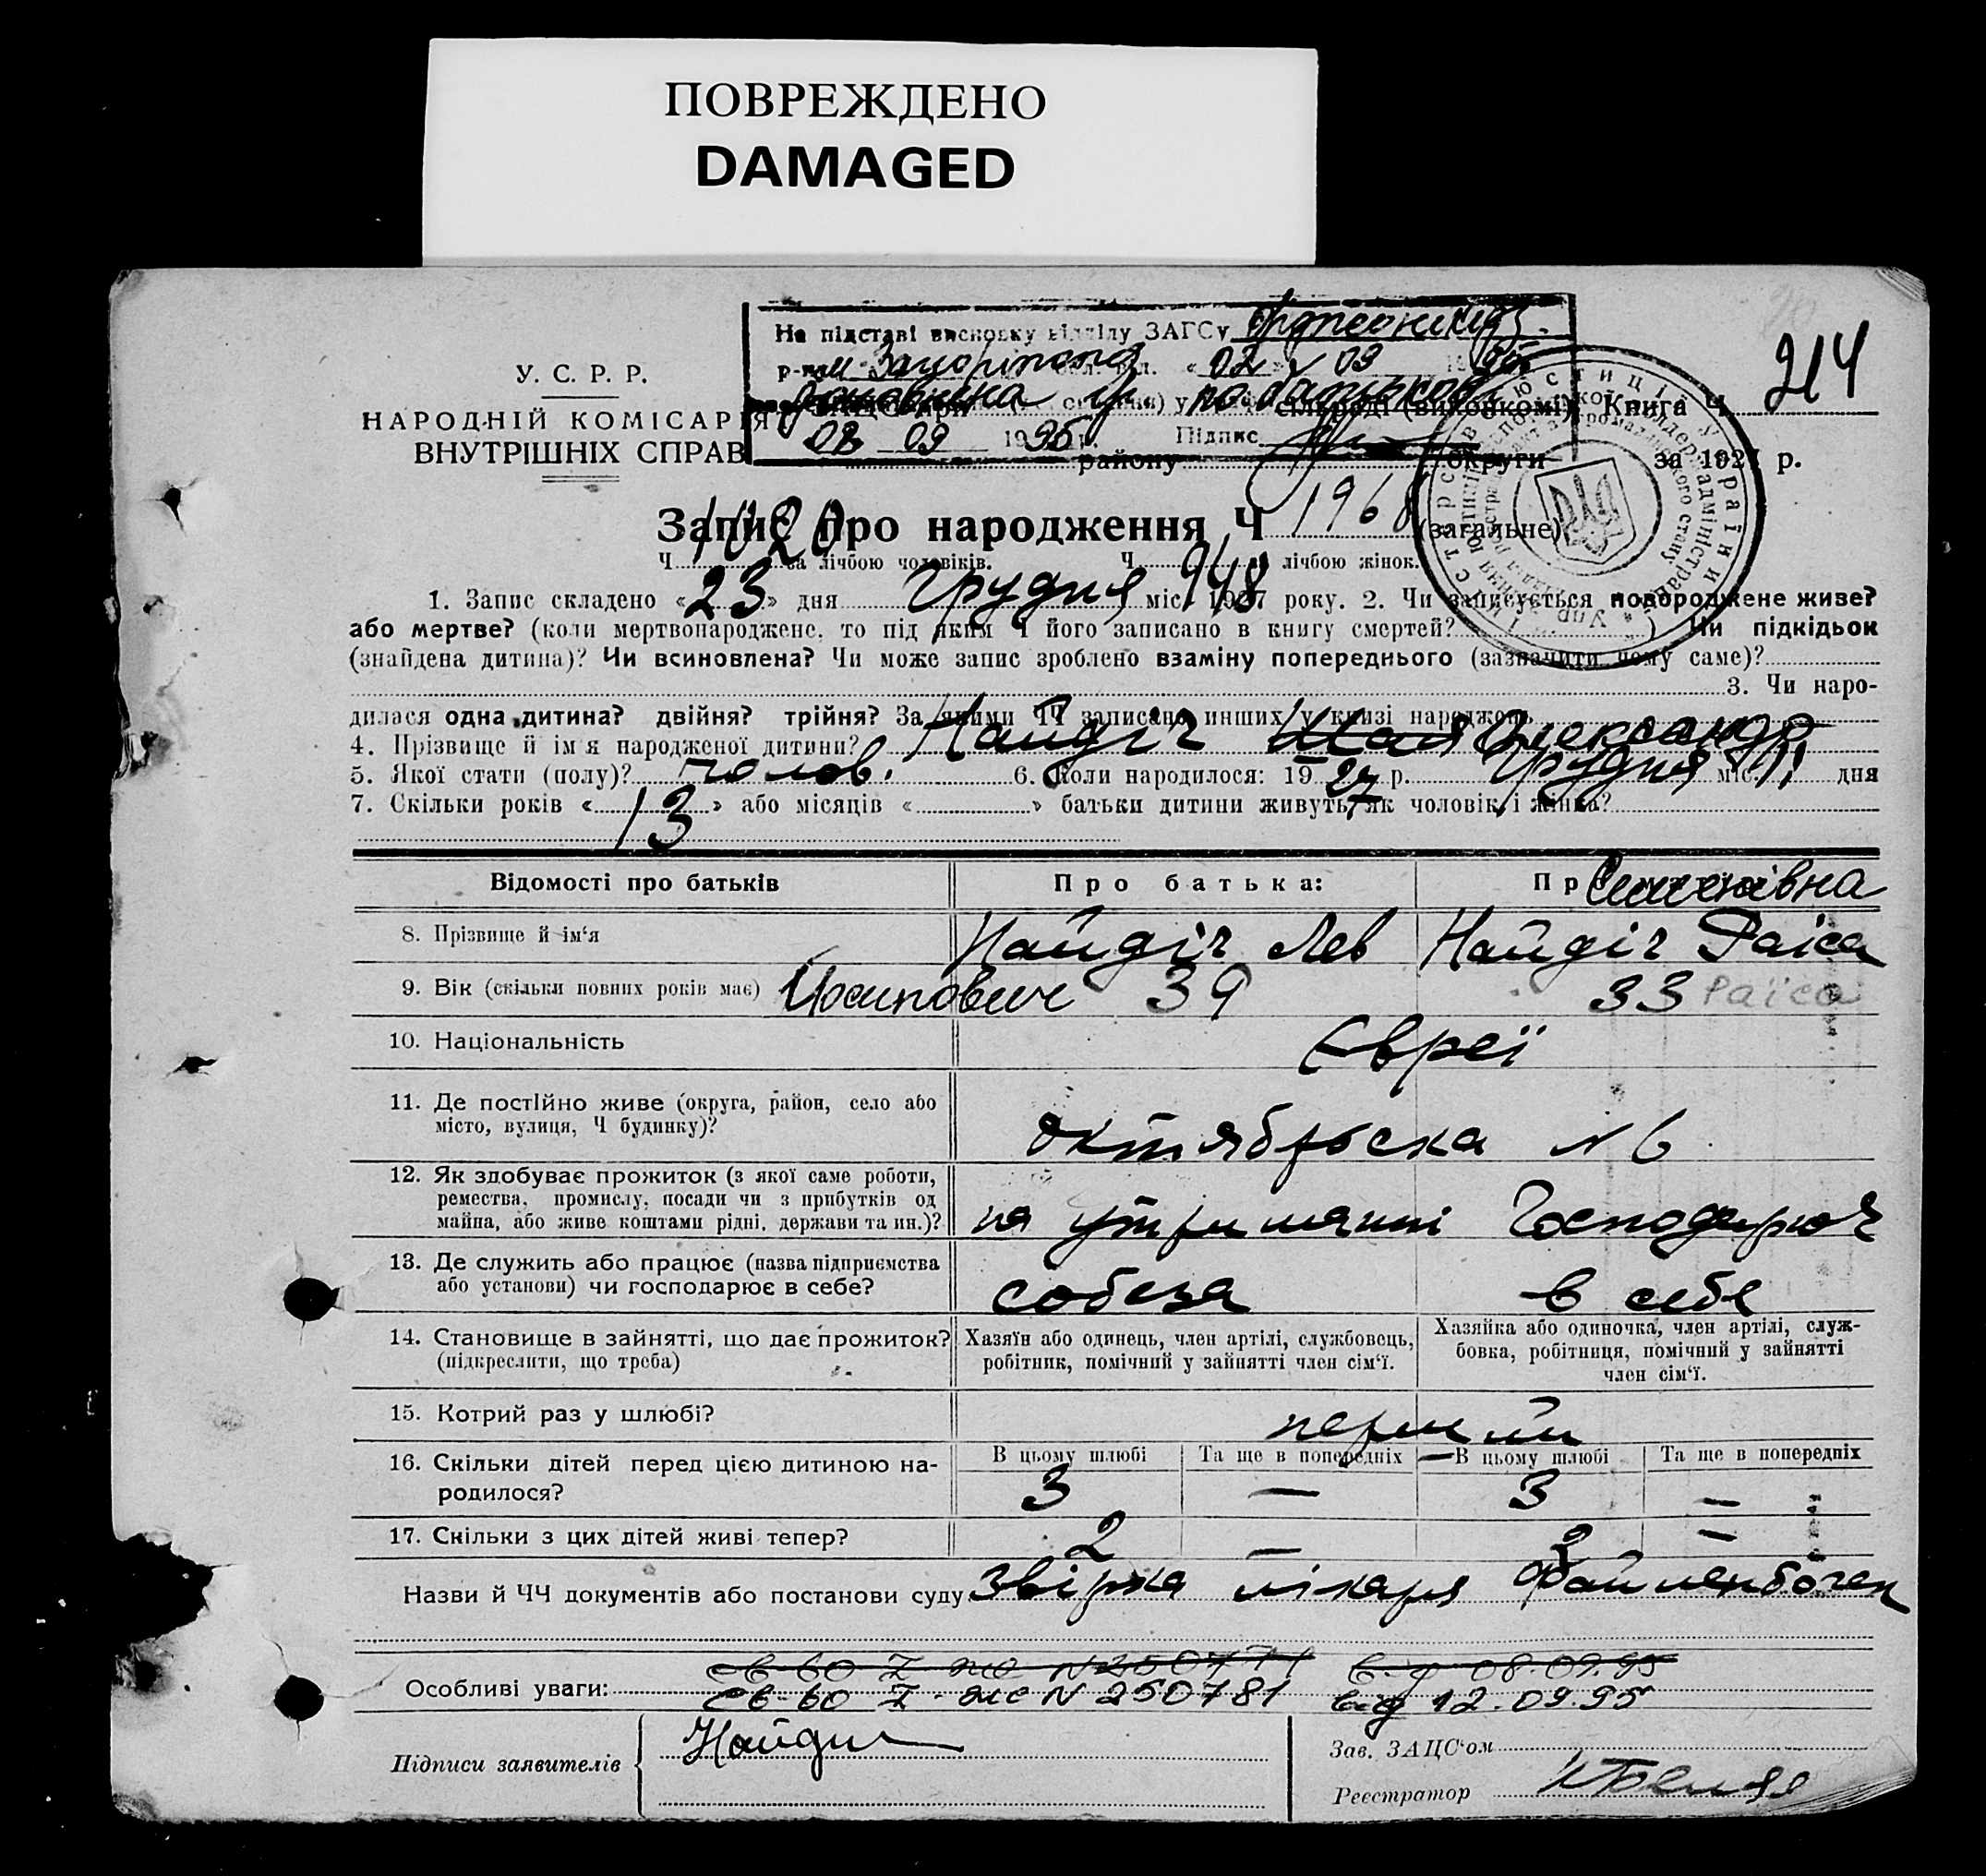 ПОВРЕЖДЕНО
DAMAGED
На підставі висновку відділу ЗАГСу
р-ну м Запоріжжя обл. від. « 02 » 09 1995
214
У. С. Р. Р.
НАРОДНІЙ КОМІСАРІЯ
ВНУТРІШНІХ СПРАВ
сільраді (виконкомі) Книга Ч
08 09 1995 р. Підпис
району округи за 1927 р.
Запис про народження Ч 1968 (загальне)
Ч 1020 за лічбою чоловіків. Ч 948 за лічбою жінок.
1. Запис складено « 23 » дня Грудня міс. 1927 року. 2. Чи записується новороджене живе?
або мертве? (коли мертвонароджене, то під яким Ч його записано в книгу смертей? ) Чи підкідьок
(знайдена дитина)? Чи всиновлена? Чи може запис зроблено взаміну попереднього (зазначити чому саме)?
3. Чи наро-
дилася одна дитина? двійня? трійня? За якими ЧЧ записано инших у книзі народжень
4. Прізвище й ім'я народженої дитини? Найдіч Олександр
5. Якої стати (полу)? чолов. 6. Коли народилося: 1927 р. Грудня міс. 11 дня
7. Скільки років « 13 » або місяців « » батьки дитини живуть, як чоловік і жінка?
Відомості про батьків Про батька: Семенівна
8. Прізвище й ім'я Найдіч Лев Найдіч Раіса
9. Вік (скільки повних років має) Йосипович 39 33 Раїса
10. Національність Євреї
11. Де постійно живе (округа, район, село або
місто, вулиця, Ч будинку)? Октябрьска N 6
12. Як здобуває прожиток (з якої саме роботи,
ремества, промислу, посади чи з прибутків од
майна, або живе коштами рідні, держави та ин.)? на утриманні Господарює
13. Де служить або працює (назва підприємства
або установи) чи господарює в себе? собеза в себе
14. Становище в зайнятті, що дає прожиток?
(підкреслити, що треба)
Хазяїн або одинець, член артілі, службовець,
робітник, помічний у зайнятті член сім'ї.
Хазяйка або одиночка, член артілі, служ-
бовка, робітниця, помічний у зайнятті
член сім'ї.
15. Котрий раз у шлюбі? перший
16. Скільки дітей перед цією дитиною на-
родилося?
В цьому шлюбі Та ще в попередніх В цьому шлюбі Та ще в попередніх
3 — 3 —
17. Скільки з цих дітей живі тепер? 2 — 2 —
Назви й ЧЧ документів або постанови суду Звірка лікаря
Особливі уваги: св-во I-же N 250771 від 08.09.95
св-во I-же N 250781 від 12.09.95
Підписи заявителів Найдич
Зав. ЗАЦС'ом
Реєстратор